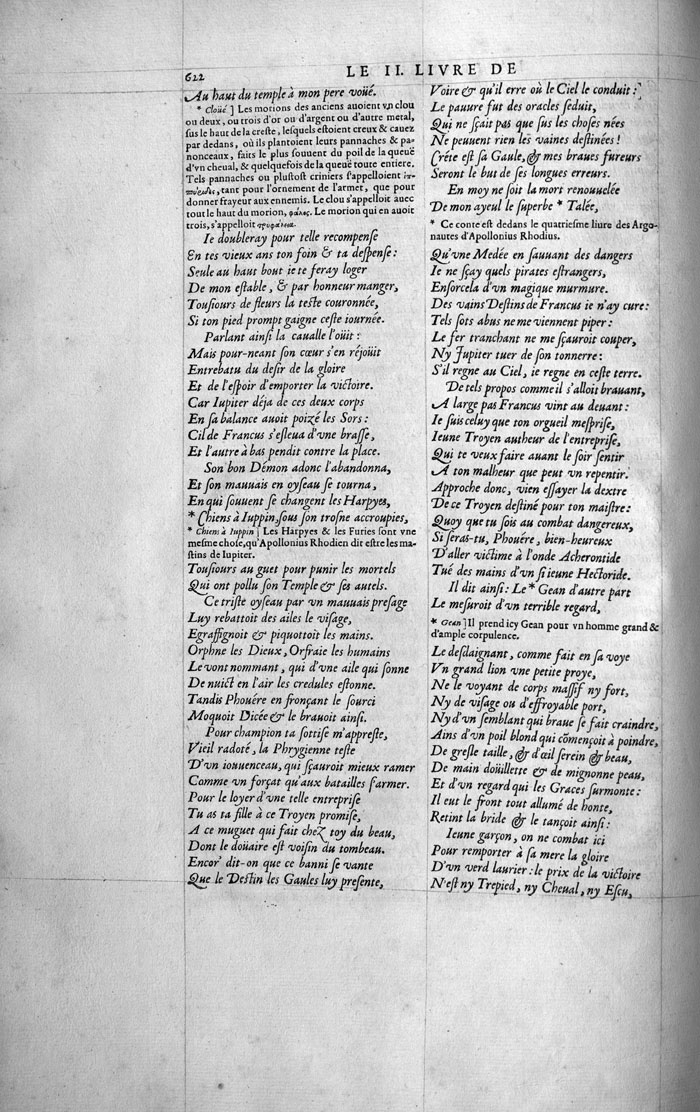 622
LE II. LIVRE DE
Au haut du temple à mon pere voüé.
* Cloüé ] Les motions des anciens auoient vn clou
ou deux, ou trois d'or ou d'argent ou d'autre metal,
sus le haut de la creste, lesquels estoient creux & cauez
par dedans, où ils plantoient leurs pannaches & pa-
nonceaux, faits le plus souuent du poil de la queuë
d'vn cheual, & quelquefois de la queuë toute entiere.
Tels pannaches ou plustost criniers s'appelloient
tant pour l'ornement de l'armet, que pour
donner frayeur aux ennemis. Le clou s'appelloit auec
tout le haut du morion, φάλος. Le morion qui en auoit
trois, s'appelloit τρυφάλεια.
Ie doubleray pour telle recompense
En tes vieux ans ton foin & ta despense:
Seule au haut bout ie te feray loger
De mon estable, & par honneur manger,
Tousiours de fleurs la teste couronnée,
Si ton pied prompt gaigne ceste iournée.
Parlant ainsi la caualle l'oüit:
Mais pour-neant son cœur s'en réjoüit
Entrebatu du desir de la gloire
Et de l'espoir d'emporter la victoire.
Car Iupiter déja de ces deux corps
En sa balance auoit poizé les Sors:
Cil de Francus s'esleua d'vne brasse,
Et l'autre à bas pendit contre la place.
Son bon Démon adonc l'abandonna,
Et son mauuais en oyseau se tourna,
En qui souuent se changent les Harpyes,
* Chiens à Iuppin, sous son trosne accroupies,
* Chiens à Iuppin ] Les Harpyes & les Furies sont vne
mesme chose, qu'Apollonius Rhodien dit estre les ma-
stins de Iupiter.
Tousiours au guet pour punir les mortels
Qui ont pollu son Temple & ses autels.
Ce triste oyseau par vn mauuais presage
Luy rebattoit des ailes le visage,
Egraffignoit & piquottoit les mains.
Orphne les Dieux, Orfraie les humains
Le vont nommant, qui d'vne aile qui sonne
De nuict en l'air les credules estonne.
Tandis Phouére en fronçant le sourci
Moquoit Dicée & le brauoit ainsi.
Pour champion ta sottise m'appreste,
Vieil radoté, la Phrygienne teste
D'vn iouuenceau, qui sçauroit mieux ramer
Comme vn forçat qu'aux batailles s'armer.
Pour le loyer d'vne telle entreprise
Tu as ta fille à ce Troyen promise,
A ce muguet qui fait chez toy du beau,
Dont le doüaire est voisin du tombeau.
Encor' dit-on que ce banni se vante
Que le Destin les Gaules luy presente,
Voire & qu'il erre où le Ciel le conduit:
Le pauure fut des oracles seduit,
Qui ne sçait pas que sus les choses nées
Ne peuuent rien les vaines destinées!
Créte est sa Gaule, & mes braues fureurs
Seront le but de ses longues erreurs.
En moy ne soit la mort renouuelée
De mon ayeul le superbe * Talée,
* Ce conte est dedans le quatriesme liure des Argo-
nautes d'Apollonius Rhodius.
Qu'vne Medée en sauuant des dangers
Ie ne sçay quels pirates estrangers,
Ensorcela d'vn magique murmure.
Des vains Destins de Francus ie n'ay cure:
Tels sots abus ne me viennent piper:
Le fer tranchant ne me sçauroit couper,
Ny Jupiter tuer de son tonnerre:
S'il regne au Ciel, ie regne en ceste terre.
De tels propos comme il s'alloit brauant,
A large pas Francus vint au deuant:
Ie suis celuy que ton orgueil mesprise,
Ieune Troyen autheur de l'entreprise,
Qui te veux faire auant le soir sentir
A ton malheur que peut vn repentir.
Approche donc, vien essayer la dextre
De ce Troyen destiné pour ton maistre:
Quoy que tu sois au combat dangereux,
Si seras-tu, Phouére, bien-heureux
D'aller victime à l'onde Acherontide
Tué des mains d'vn si ieune Hectoride.
Il dit ainsi: Le * Gean d'autre part
Le mesuroit d'vn terrible regard,
* Gean ] Il prend icy Gean pour vn homme grand &
d'ample corpulence.
Le desdaignant, comme fait en sa voye
Vn grand lion vne petite proye,
Ne le voyant de corps massif ny fort,
Ny de visage ou d'effroyable port,
Ny d'vn semblant qui braue se fait craindre,
Ains d'vn poil blond qui cõmençoit à poindre,
De gresle taille, & d'œil serein & beau,
De main doüillette & de mignonne peau,
Et d'vn regard qui les Graces surmonte:
Il eut le front tout allumé de honte,
Retint la bride & le tançoit ainsi:
Ieune garçon, on ne combat ici
Pour remporter à sa mere la gloire
D'vn verd laurier: le prix de la victoire
N'est ny Trepied, ny Cheual, ny Escu,